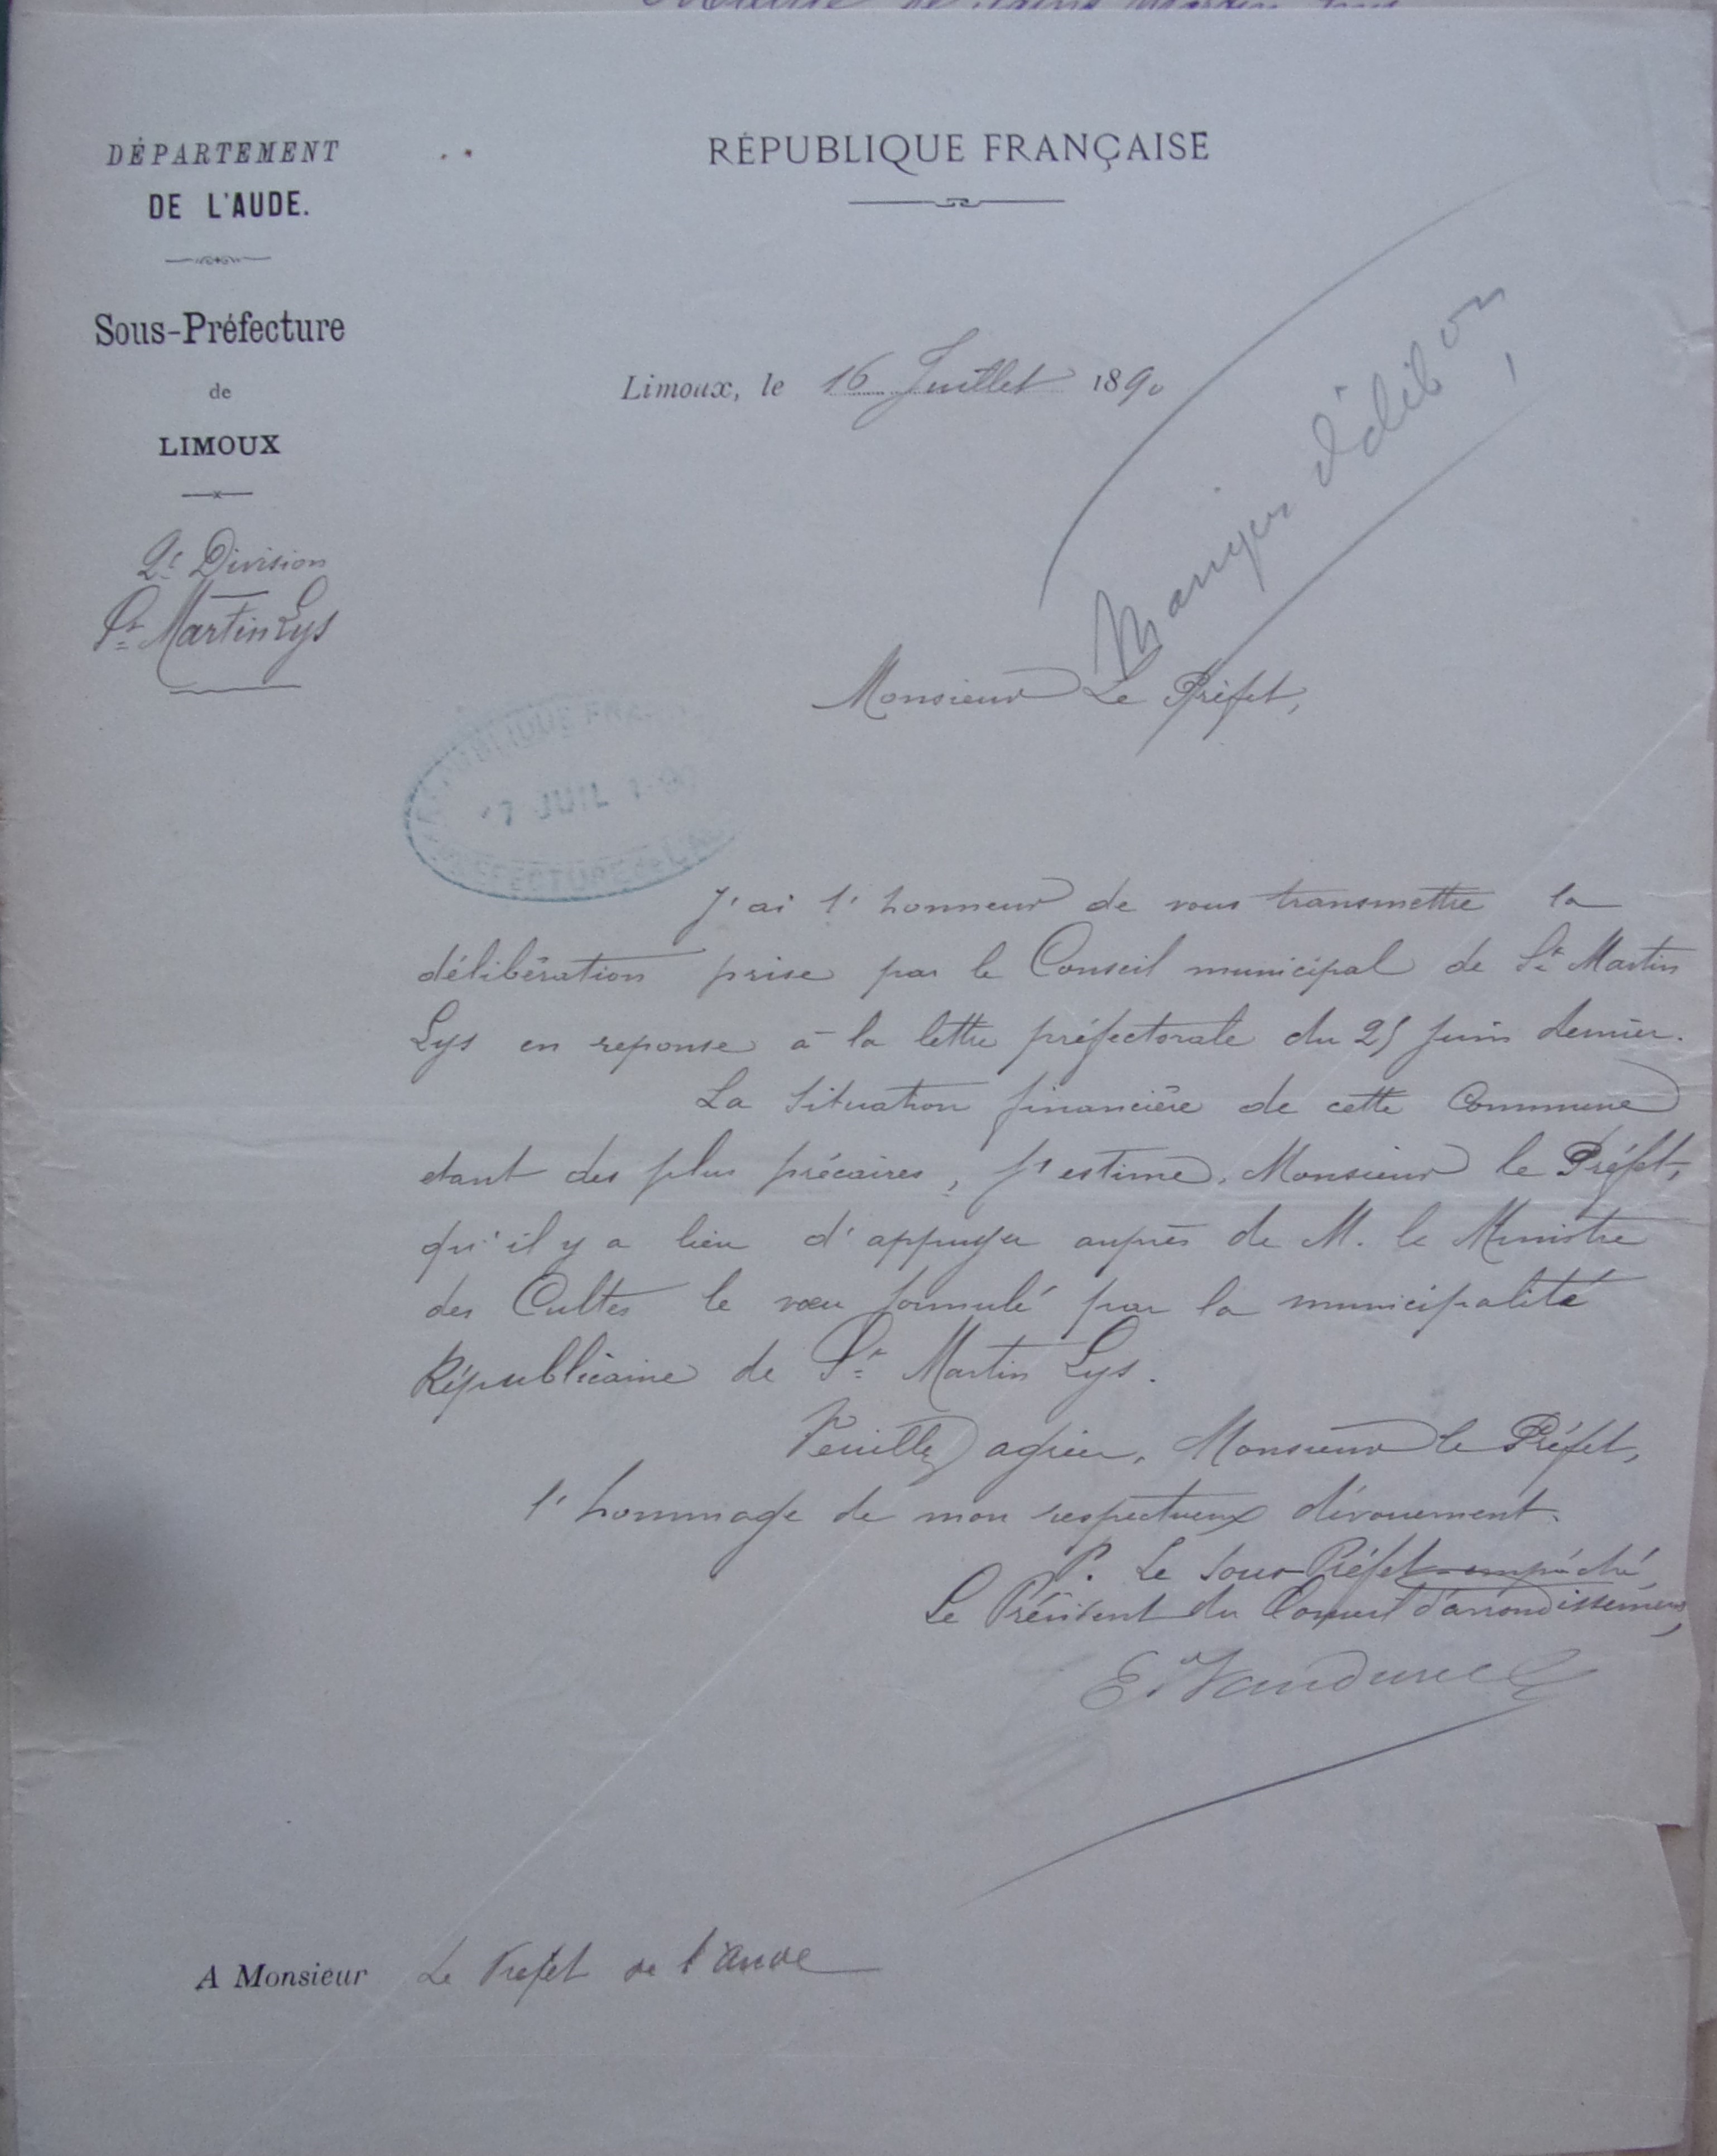 DÉPARTEMENT
DE L'AUDE.
Sous-Préfecture
de
LIMOUX
2e Division
St Martin Lys
RÉPUBLIQUE FRANÇAISE
Limoux, le 16 Juillet 1890
Manque délibon
Monsieur Le Préfet,
RÉPUBLIQUE FRA
17 JUIL 1890
PRÉFECTURE DE L'AU
J'ai l'honneur de vous transmettre la
délibération prise par le Conseil municipal de St Martin
Lys en reponse à la lettre préfectorale du 25 juin dernier.
La situation financière de cette Commune
etant des plus précaires, j'estime, Monsieur le Préfet,
qu'il y a lieu d'appuyer auprès de M. le Ministre
des Cultes le vœu formulé par la municipalité
Républicaine de St Martin Lys.
Veuillez agréer, Monsieur le Préfet,
l'hommage de mon respectueux dévouement.
P. Le Sous-Préfet empêché,
Le Président du Conseil d'arrondissement,
A Monsieur Le Prefet de l'Aude